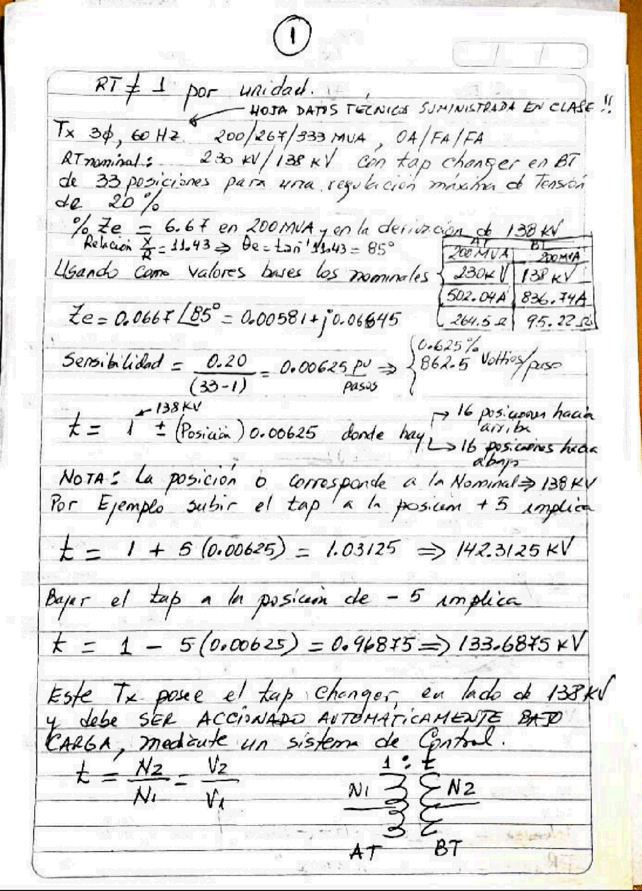 1
RT ≠ 1 por unidad.
HOJA DATOS TÉCNICOS SUMINISTRADA EN CLASE!!
Tx 3φ, 60 Hz 200/267/333 MVA, OA/FA/FA
RT nominal: 230 KV/138 KV con tap changer en BT
de 33 posiciones para una regulación máxima de Tensión
de 20%
% Ze = 6.67 en 200 MVA y en la derivación de 138 KV
Relación X/R = 11.43 ⇒ θe = tan⁻¹ 11.43 = 85°
Usando como valores bases los nominales
AT BT
200 MVA 200 MVA
230 KV 138 KV
502.04 A 836.74 A
264.5 Ω 95.22 Ω
Ze = 0.0667 ∠85° = 0.00581 + j0.06645
Sensibilidad = 0.20/(33-1) = 0.00625 pu/pasos ⇒ { 0.625% 862.5 Voltios/paso
138 KV
t = 1 ± (Posición) 0.00625 donde hay
→ 16 posiciones hacia arriba
→ 16 posiciones hacia abajo
NOTA: La posición 0 corresponde a la Nominal ⇒ 138 KV
Por Ejemplo subir el tap a la posición +5 implica
t = 1 + 5 (0.00625) = 1.03125 ⇒ 142.3125 KV
Bajar el tap a la posición de -5 implica
t = 1 - 5 (0.00625) = 0.96875 ⇒ 133.6875 KV
Este Tx posee el tap changer, en lado de 138 KV
y debe SER ACCIONADO AUTOMÁTICAMENTE BAJO
CARGA, mediante un sistema de Control.
t = N2/N1 = V2/V1
1 : t
N1 N2
AT BT